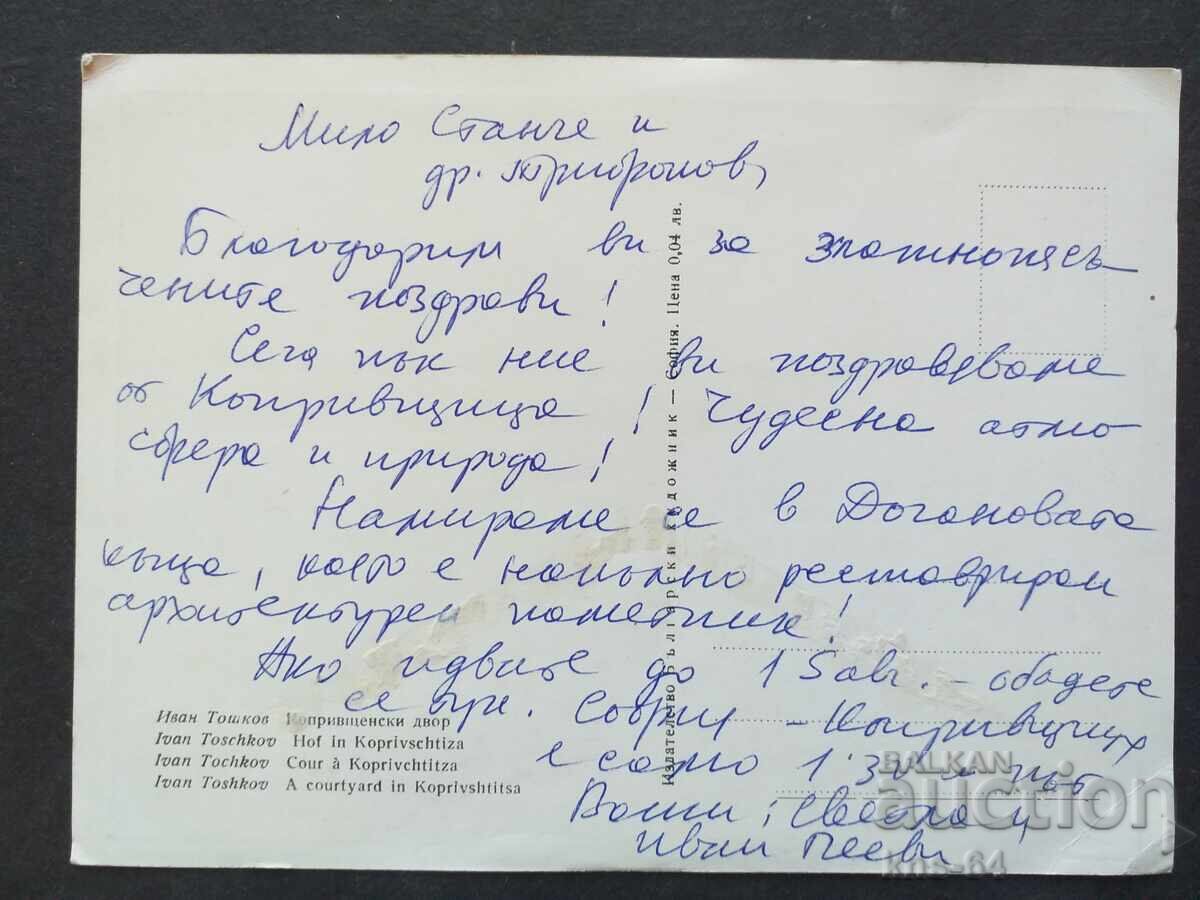 Мило Станче и
др.
Благодарим ви за златнопясъ-
чените поздрави!
Сега пък ние ви поздравяваме
от Копривщица! Чудесна атмо
сфера и природа!
Намираме се в Догановата
къща, която е напълно реставриран
архитектурен паметник!
Ако идвате до 15 авг. - обадете
се
София - Копривщица
е само 1 път
Ваши: Светла и
Иван Пееви
Иван Тошков Копривщенски двор
Ivan Toschkov Hof in Koprivschtiza
Ivan Tochkov Cour à Koprivchtitza
Ivan Toshkov A courtyard in Koprivshtitsa
Издателство Български художник — София. Цена 0,04 лв.
BALKAN
auction
kns-64